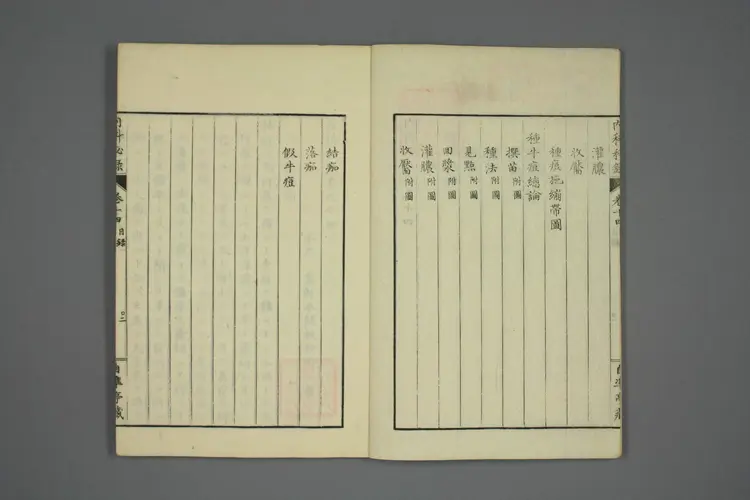 內科秘錄 卷十四
灌膿
收靨
種痘施繃帶圖
種牛痘總論
撰苗附圖
種法附圖
見點附圖
回漿附圖
灌膿附圖
收靨附圖
結痂
落痂
假牛痘
內科秘錄 卷十四 目錄 二
自準亭藏